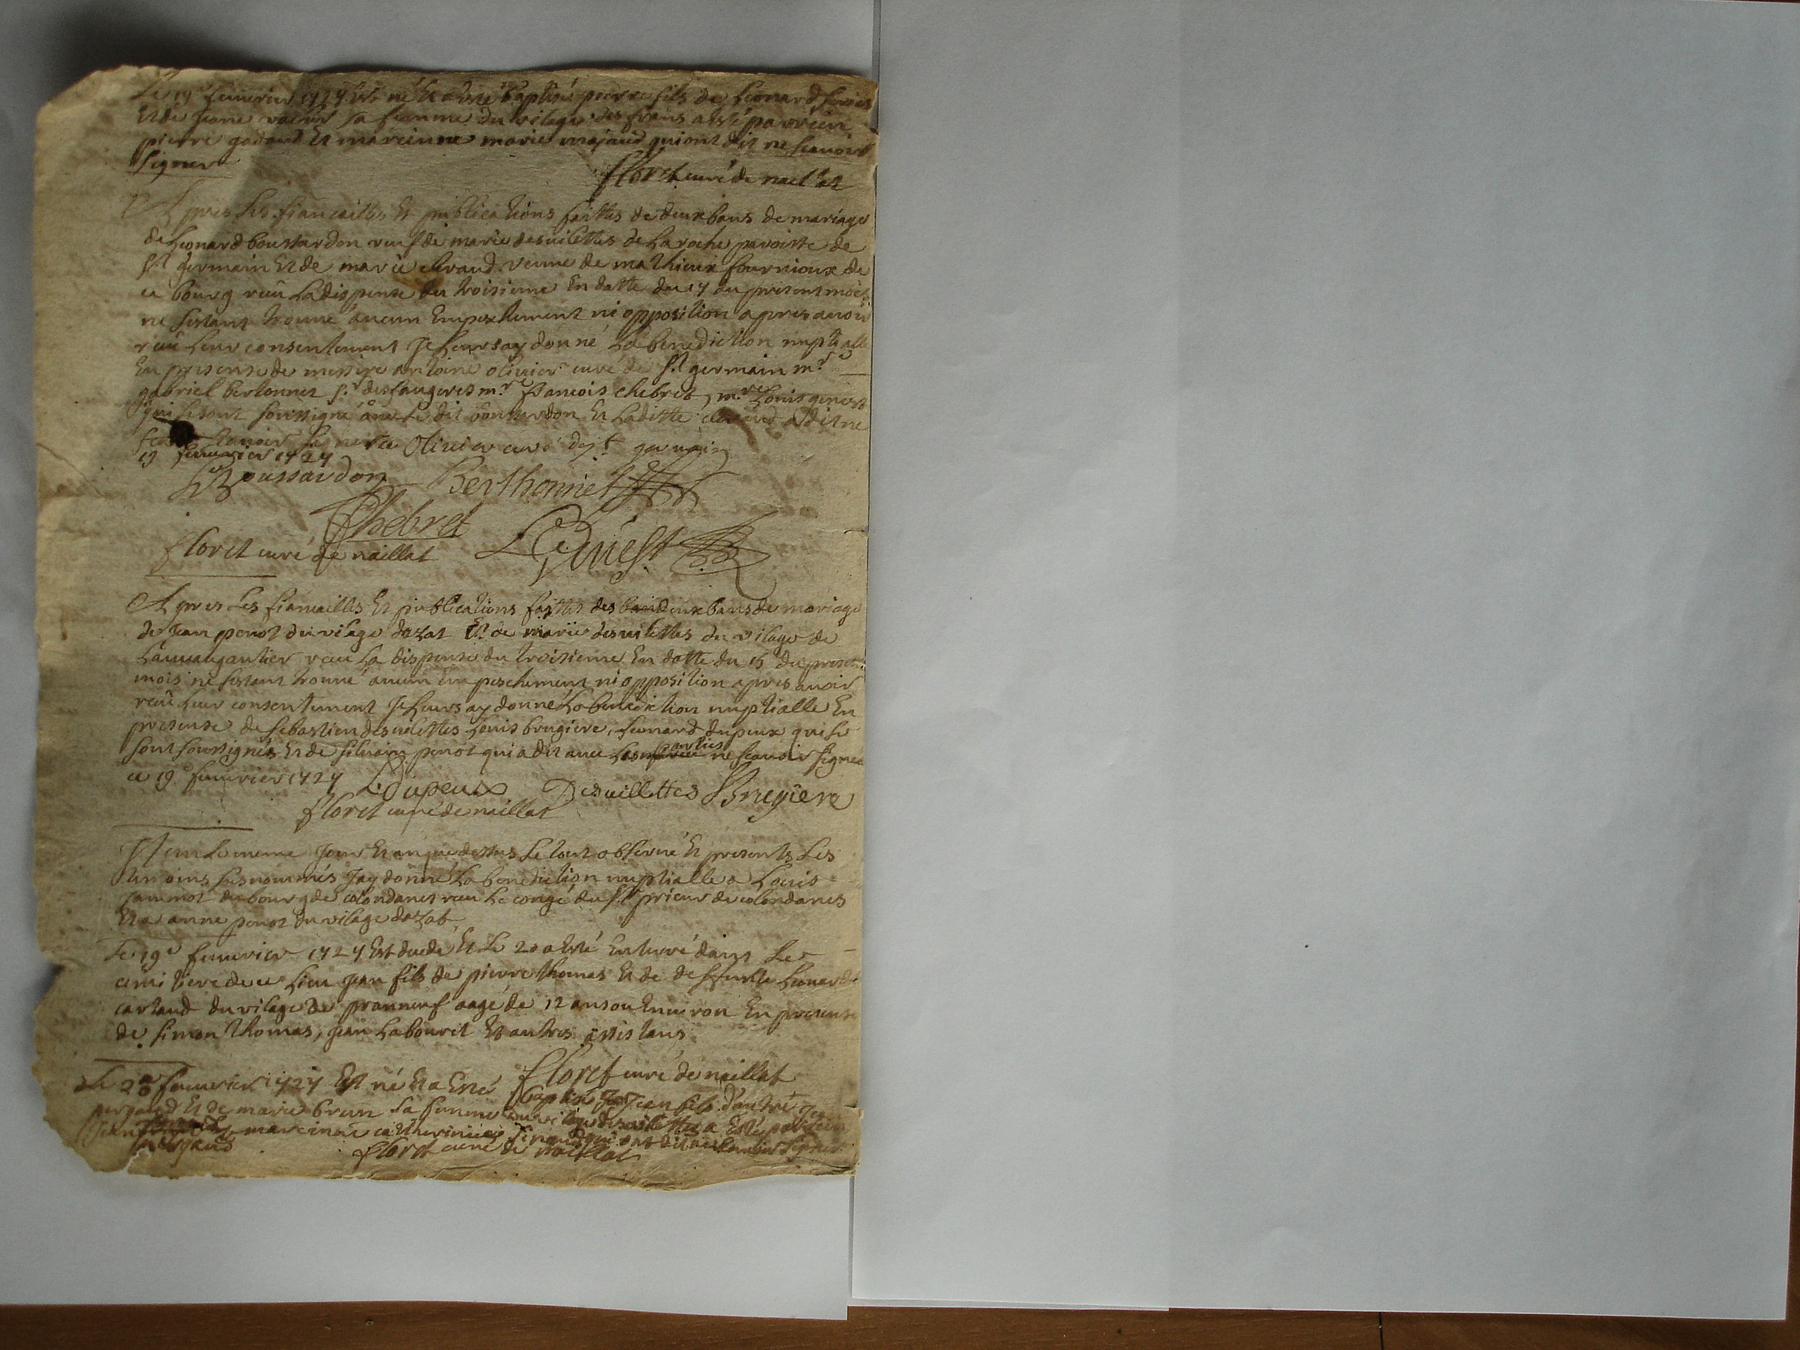 Le 19e feuvrier 1727 Est né Et a esté baptisé pierre fils de Leonard
Et de Jeane sa femme du vilage des frans a esté parrein
pierre Et mareinne marie qui ont dit ne scavoir
signer
floret curé de naillat
Apres les fiancailles Et publications faittes de deux bans de mariage
de Leonard boussardon veuf de marie desvilettes de Laroche parroisse de
st germain Et de marie veuve de mathieu fournioux de
ce bourg veu La dispense du troisieme En datte du 17 du present mois
ne sestant trouvé aucun Empeschement ni opposition apres avoir
receu Leur consentement Je Leurs ay donné La benediction nuptialle
En presense de messire antoine olivier curé de st germain mr
gabriel bertonnet sr des faugeres mr francois chebret, mr Louis genest
qui se sont soussigné avec Le dit boussardon Et Laditte a dit ne
scavoir signer ce Olivier curé de st germain
19 feuvrier 1727
LBoussardon Berthonnet
Chebret
floret curé de naillat LGenest
Apres Les fiancailles Et publications faittes des deux bans de mariage
de Jean penot du vilage dazat Et de marie desvilettes du vilage de
veu La dispense du troisieme En datte du 15 du present
mois ne sestant trouvé aucun Empeschement ni opposition apres avoir
receu Leur consentement Je Leurs ay donné La benediction nuptialle En
presense de sebastien desvilettes Louis brugiere, Leonard dupeux qui se
sont soussignés Et de silvain penot qui a dit avec Les parties ne scavoir signer
ce 19e feuvrier 1727 LDupeux Desvillettes Brugiere
floret curé de naillat
Item Le meme Jour Et an que dessus Le tout observé Et presents Les
temoins susnommés Jay donné La benediction nuptialle a Louis
jammot du bourg de colondanes veu Le congé du sr prieur de colondanes
Et a anne penot du vilage dazat
Le 19e feuvrier 1727 Est decedé Et Le 20 a Esté Enterré dans Le
cemitiere de ce Lieu Jean fils de pierre thomas Et de deffunte Leonarde
cartaud du vilage de praneuf aagé de 12 ans ou Environ En presense
de simon thomas, Jean Labouret Et autres assistans
floret curé de naillat
Le 20e feuvrier 1727 Est né Et a Esté baptisé Jean fils d'andré
Et de marie brun sa femme du vilage desvilettes a Esté parrein
Jean mareinne catherine qui ont dit ne scavoir signer
floret curé de naillat